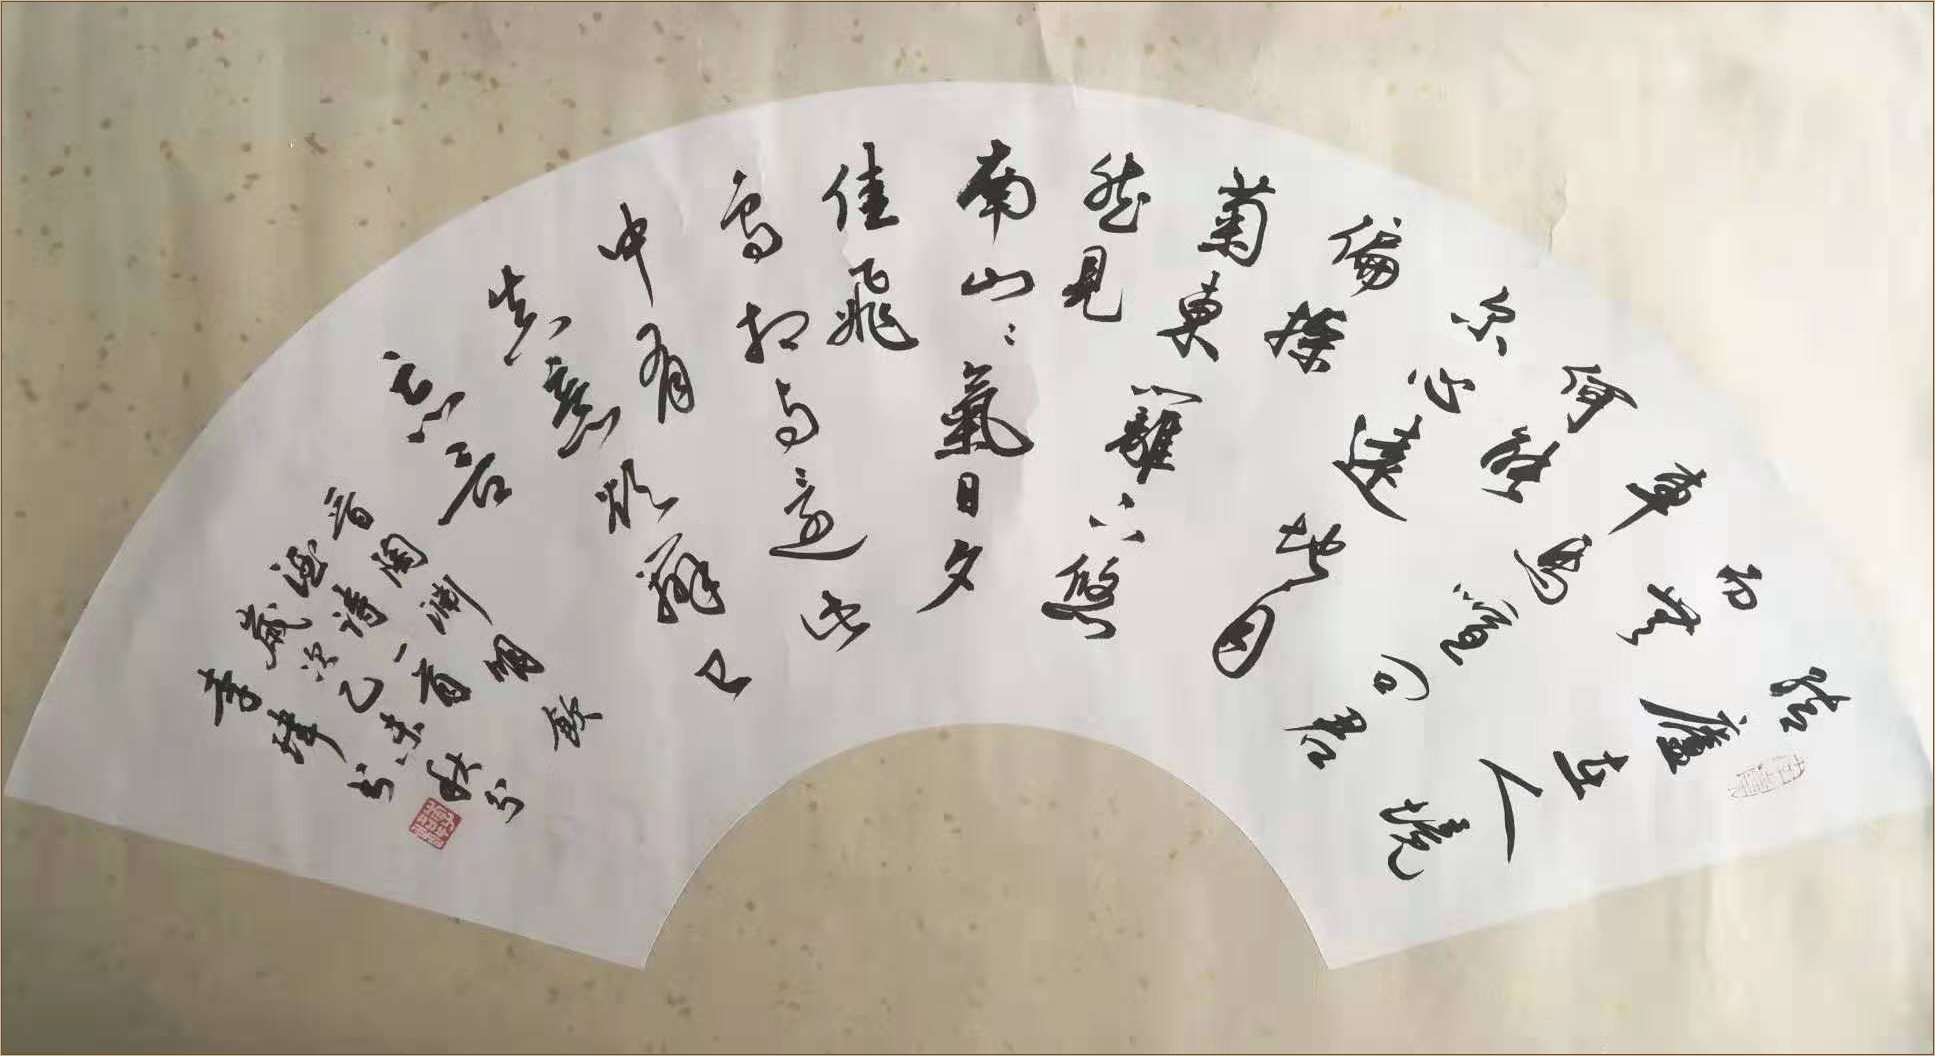 結廬在人境
而無
車馬喧問君
何能
尔心遠地自
偏採
菊東籬下悠
然見
南山〻氣日夕
佳飛
鳥相与還此
中有
真意欲辨已
忘言
晋陶淵明飲
酒詩一首
歲次乙未秋分
李書